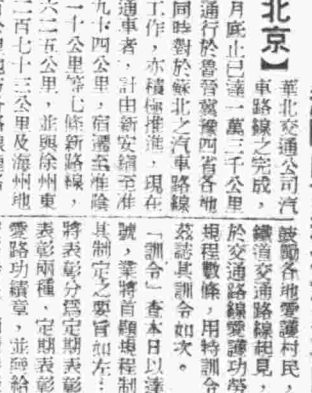 北京】
華北交通公司汽
車路線之完成，
月底止已達一萬三千公里
通行於魯晉冀豫四省各地
同時對於蘇北之汽車路線
工作，亦積極推進，現在
通車者，計由新安鎮至淮
九十四公里，宿遷至淮陰
一十公里等七條新路線，
六二五公里，並與徐州東
二百七十三公里及海州地
鼓勵各地愛護村民，
鐵道交通路線起見，
於交通路線愛護功勞
規程數條，用特訓令
茲誌其訓令如次。
「訓令」查本日以達
號，業將首題規程制
其制定之要旨如左：
將表彰分為定期表彰
表彰兩種，定期表彰
愛路功績章，並酬給